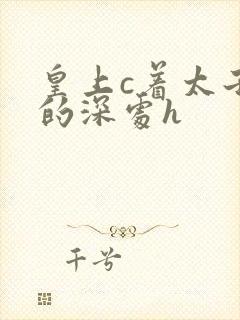 皇上c着太子
的深处h
千兮